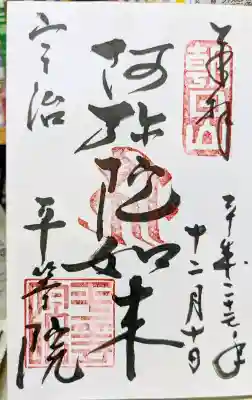 奉拝
平成二七年
十二月十日
阿弥陀如来
宇治
平等院